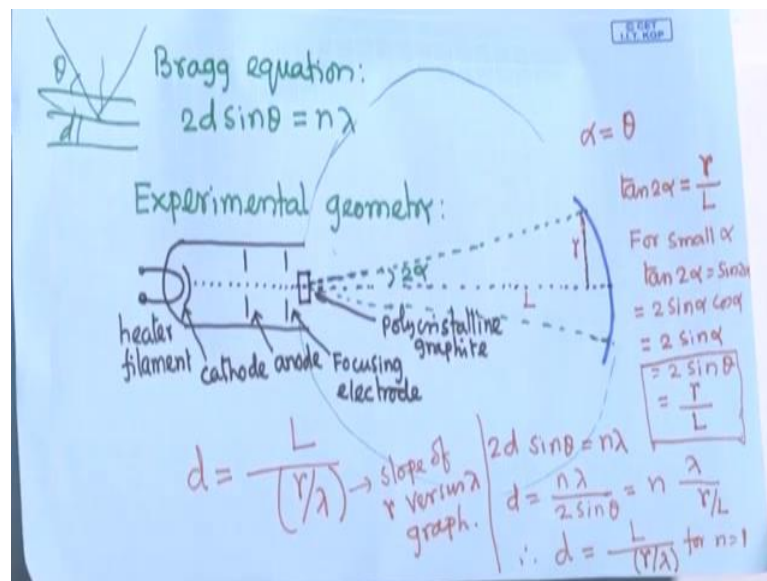 © CET
I.I.T. KGP
θ
d
Bragg equation:
2d sinθ = nλ
Experimental geometry:
heater
filament
cathode
anode
Focusing
electrode
polycristalline
graphite
2α
L
r
α = θ
tan2α = r/L
For small α
tan 2α = sin2α
= 2 sinα cosα
= 2 sinα
= 2 sinθ
= r/L
d = L/(r/λ) → slope of
r versus λ
graph.
2d sinθ = nλ
d = nλ/2sinθ = n λ/r/L
∴ d = L/(r/λ) for n=1